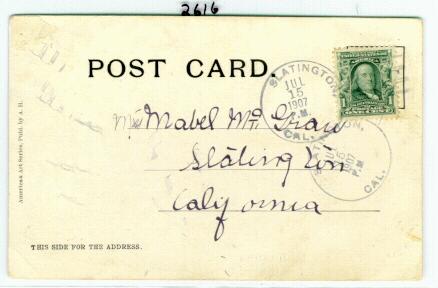 2616
POST CARD.
SLATINGTON,
JUL
15
1907
P.M.
CAL.
Mabel Mc Grau
Slatington
California
CAL.
THIS SIDE FOR THE ADDRESS.
American Art Series, Publ. by A. H.